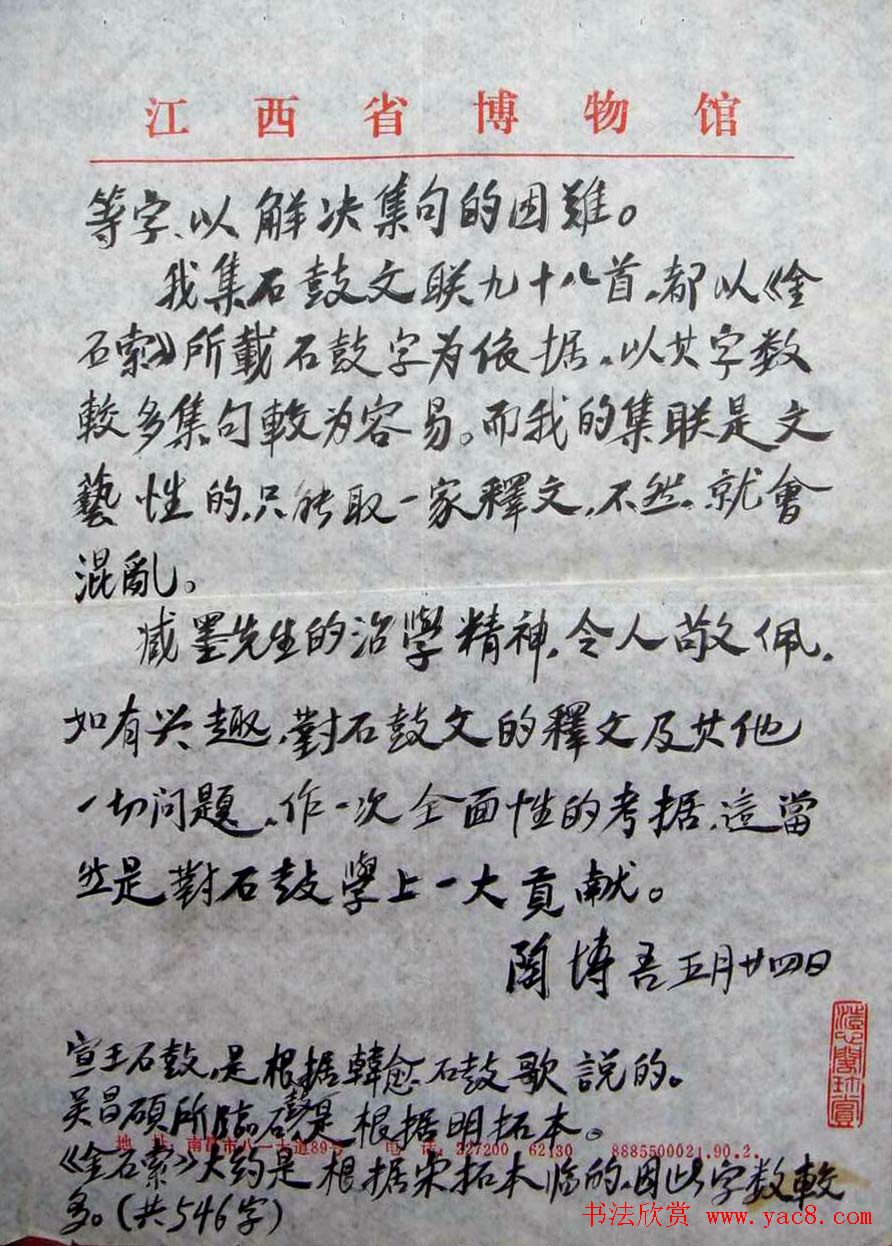 江西省博物馆
等字、以解决集句的困难。
我集石鼓文联九十八首，都以《金
石索》所载石鼓字为依据，以其字数
較多集句較为容易。而我的集联是文
藝性的，只能取一家釋文，不然，就會
混亂。
臧墨先生的治學精神，令人敬佩，
如有兴趣，對石鼓文的釋文及其他
一切问題，作一次全面性的考据，這當
然是對石鼓學上一大貢献。
陶博吾五月廿四日
宣王石鼓，是根据韓愈石鼓歌説的。
吴昌碩所臨石鼓是根据明拓本。
地址：南昌市八一大道89号 电话：227200 62130 8885500021.90.2.
《金石索》大约是根据宋拓本临的，因此字数較
多。（共546字）
书法欣赏 www.yac8.com